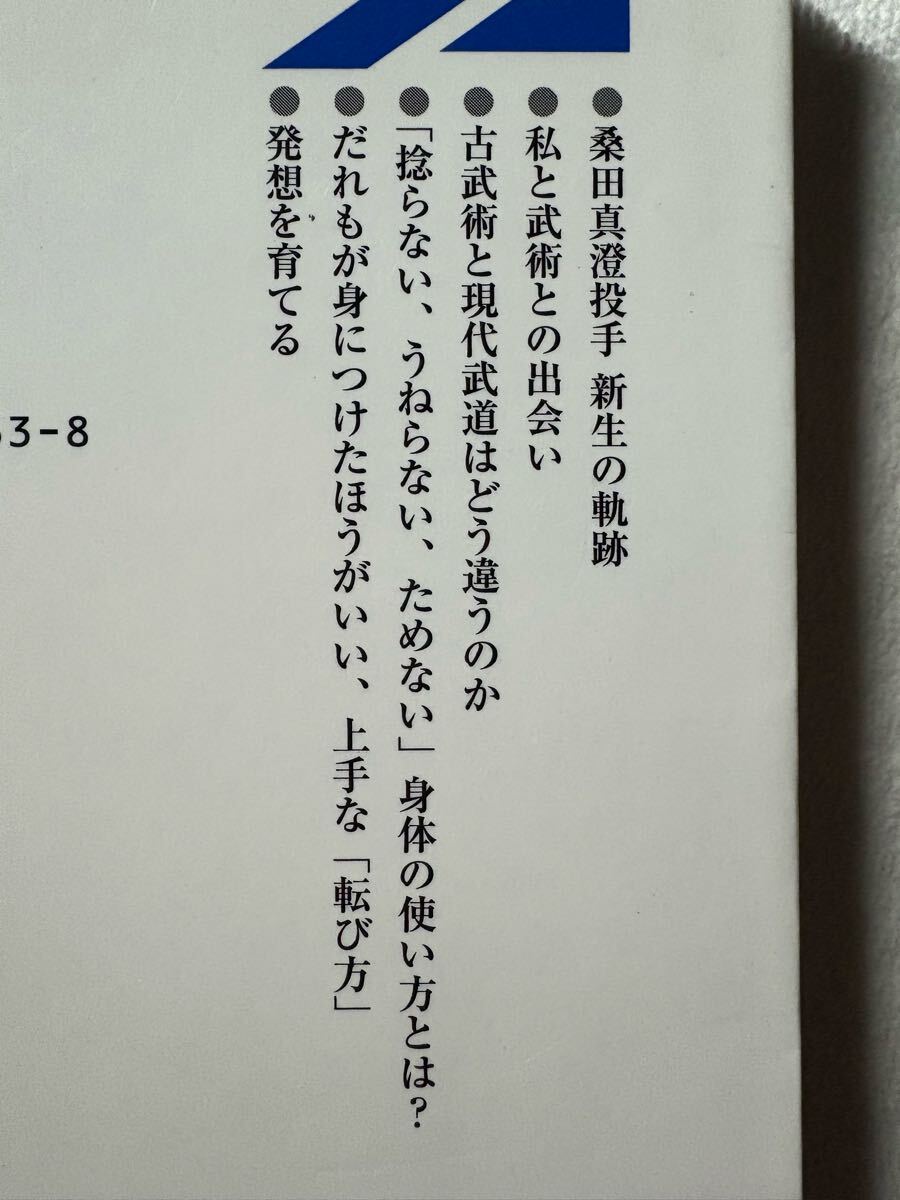 ●桑田真澄投手 新生の軌跡
●私と武術との出会い
●古武術と現代武道はどう違うのか
●「捻らない、うねらない、ためない」身体の使い方とは?
●だれもが身につけたほうがいい、上手な「転び方」
●発想を育てる
3-8